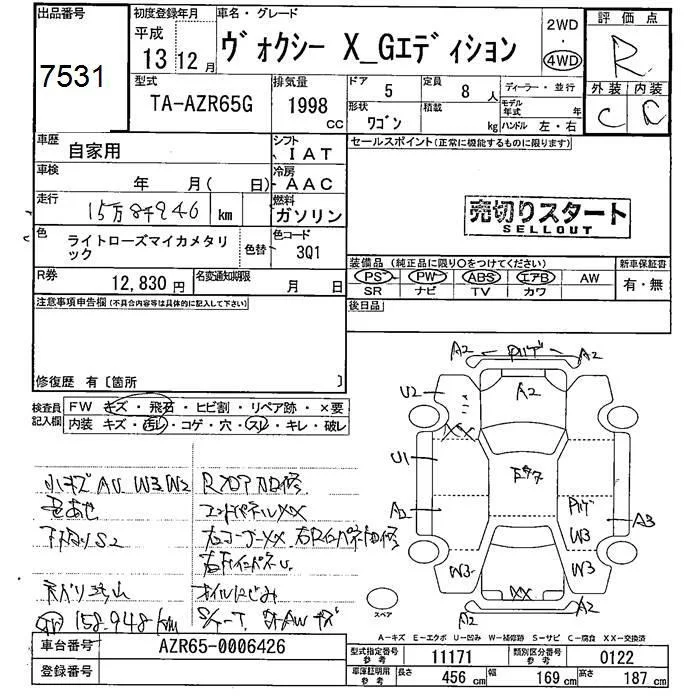 出品番号
7531
初度登録年月
平成
13 12月
車名・グレード
ヴォクシー X_Gエディション
2WD
・
4WD
評価点
R
外装 内装
C C
型式
TA-AZR65G
排気量
1998
CC
ドア
5
定員
8 人
ディーラー・並行
形状
ワゴン
積載
kg
モデル年式 年
ハンドル 左・右
車歴
自家用
シフト
IAT
車検
年 月( 日)
冷房
AAC
走行
15万8千946 km
燃料
ガソリン
色
ライトローズマイカメタリック
色替
色コード
3Q1
R券
12,830円
名変通知期限
月 日
セールスポイント(正常に機能するものに限ります)
売切りスタート
SELLOUT
装備品(純正品に限り○をつけてください)
PS PW ABS エアB AW
SR ナビ TV カワ
新車保証書
有・無
後日品
注意事項申告欄(不具合内容等は具体的に記入して下さい)
修復歴 有〔箇所 〕
検査員記入欄
FW キズ・飛石・ヒビ割・リペア跡・×要
内装 キズ・汚レ・コゲ・穴・スレ・キレ・破レ
小キズ AU W3 W2
色あせ
下廻りS2
158.948km
A2 A2
A2
U2
XX
U1
A2
W3
A3
W3 W3
XX
A2 A2
スペア
A-キズ E-エクボ U-凹み W-補修跡 S-サビ C-腐食 XX-交換済
車台番号
AZR65-0006426
登録番号
型式指定番号
参考
11171
類別区分番号
参考
0122
車庫証明用
参考
長さ
456 cm
幅
169 cm
高さ
187 cm